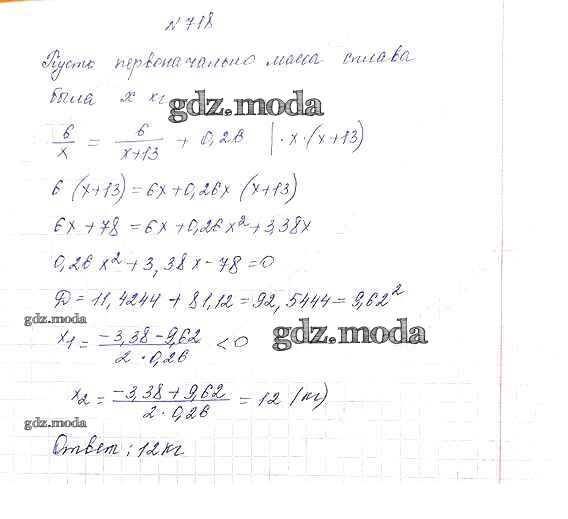 №718
Пусть первоначально масса сплава
была x кг
gdz.moda
6/x = 6/(x+13) + 0,26 | · x · (x+13)
6 (x+13) = 6x + 0,26x (x+13)
6x + 78 = 6x + 0,26x² + 3,38x
0,26x² + 3,38x - 78 = 0
Д = 11,4244 + 81,12 = 92,5444 = 9,62²
gdz.moda
x₁ = (-3,38 - 9,62)/(2 · 0,26) < 0
gdz.moda
x₂ = (-3,38 + 9,62)/(2 · 0,26) = 12 (кг)
gdz.moda
Ответ: 12 кг